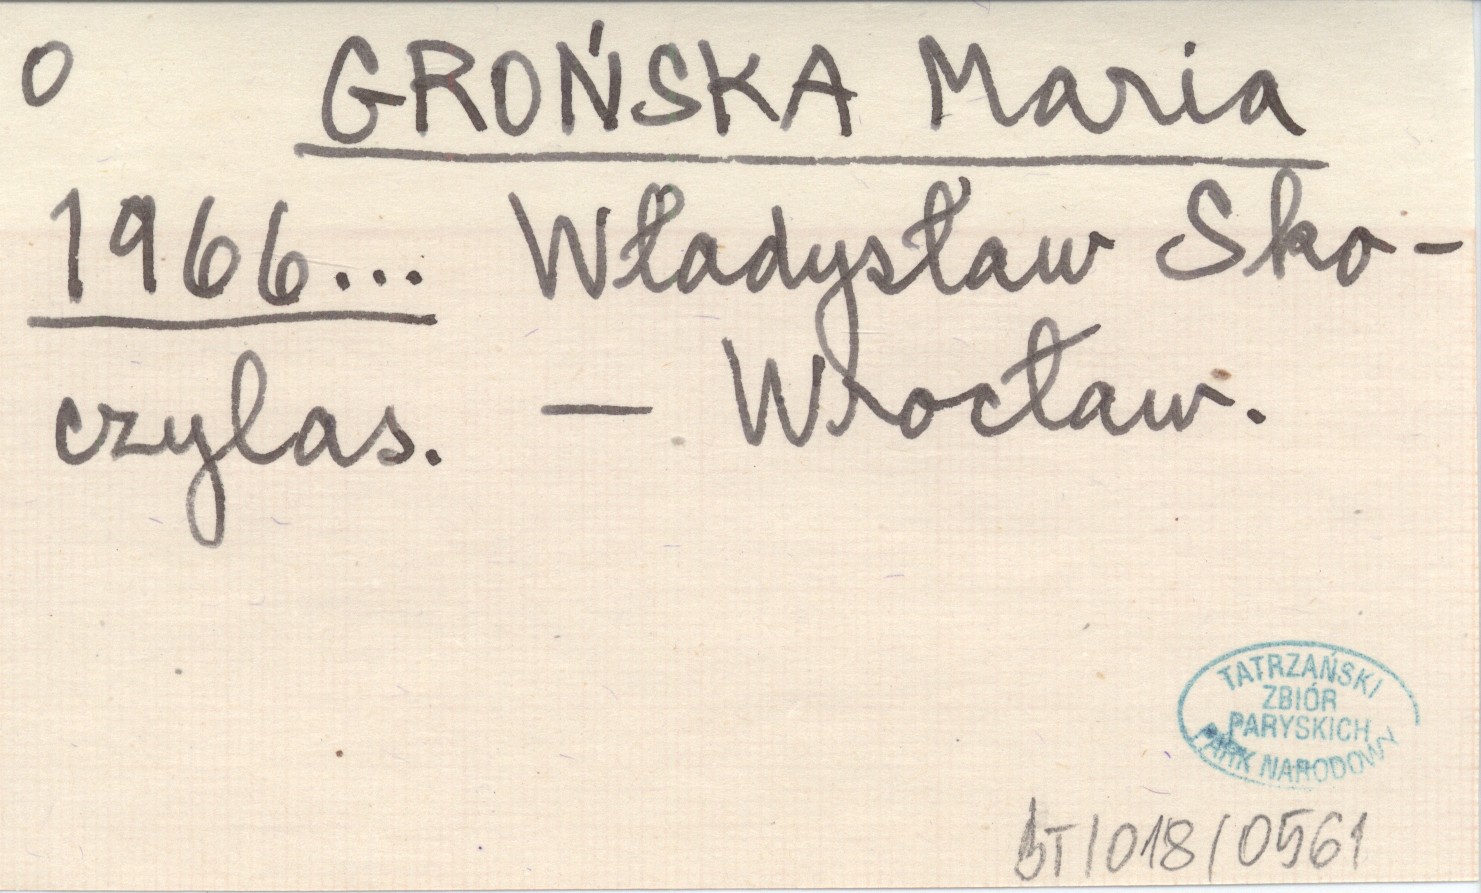 O GROŃSKA Maria
1966... Władysław Sko-
czylas. — Wrocław.
TATRZAŃSKI
ZBIÓR
PARYSKICH
PARK NARODOWY
BT/018/0561